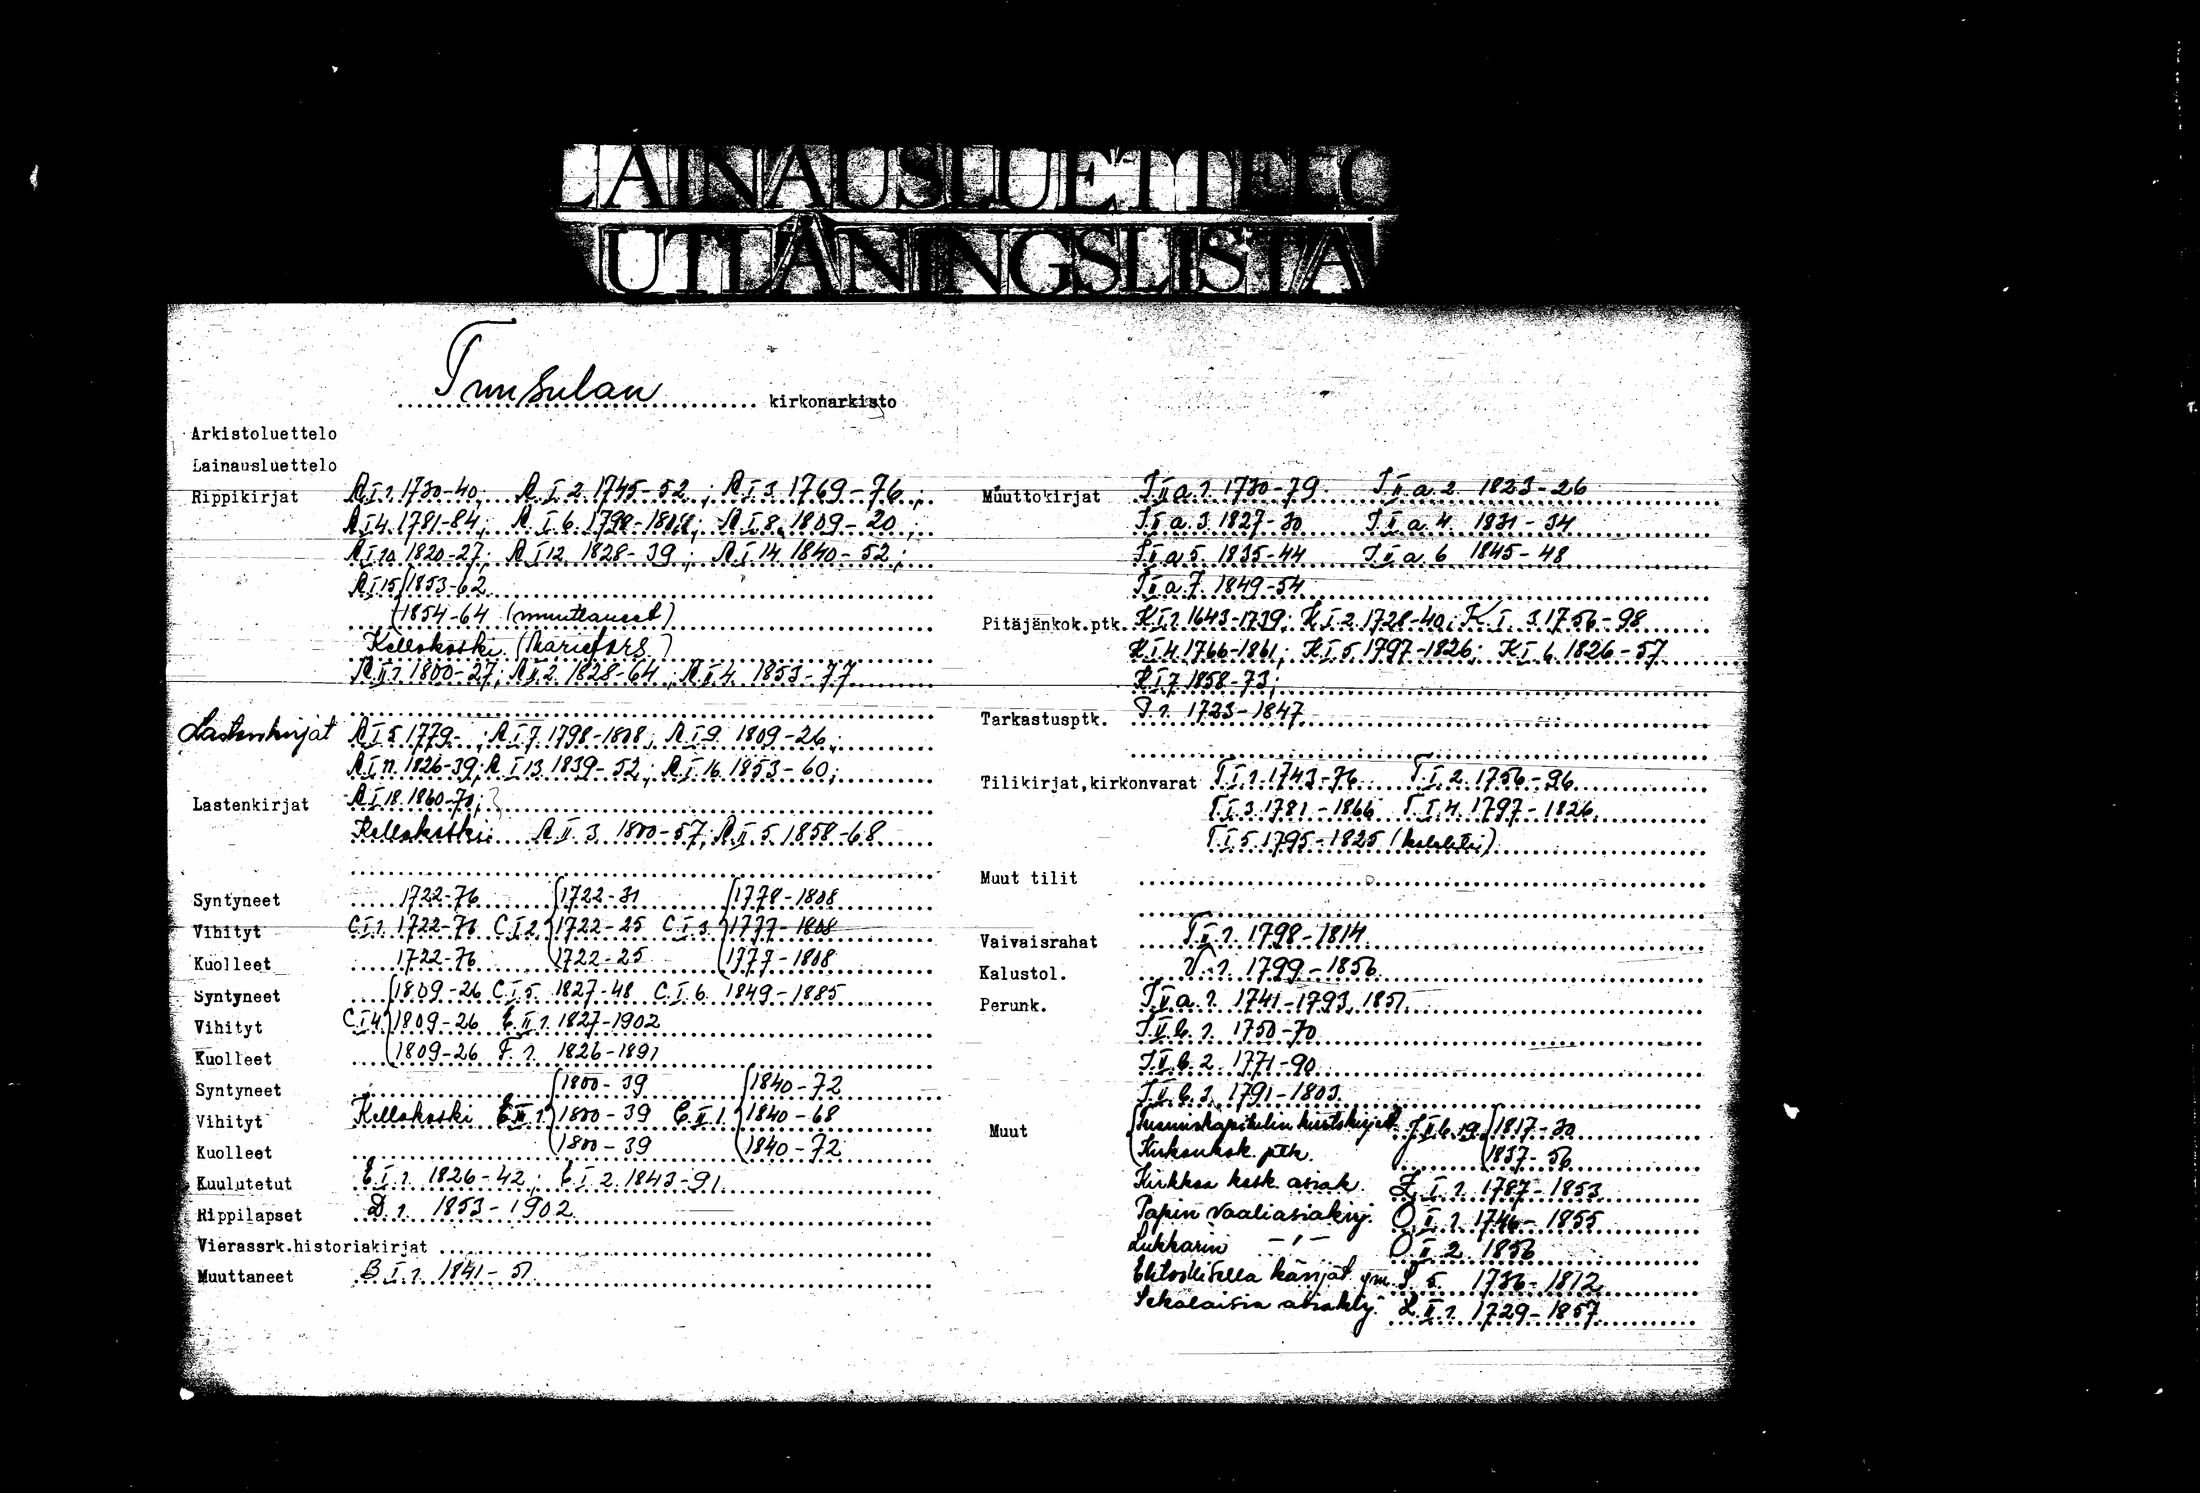 LAINAUSLUETTELO
UTLÅNINGSLISTA
Tuusulan kirkonarkisto
Arkistoluettelo
Lainausluettelo
Rippikirjat R I 1. 1730-40, R I 2. 1745-52; R I 3. 1769-76;
R I 4. 1781-84; R I 6. 1798-1808; R I 8. 1809-20;
R I 10. 1820-27; R I 12. 1828-39; R I 14. 1840-52;
R I 15 1853-62
1854-64 (muuttaneet)
Kellokoski (Mariefors)
R II 1. 1800-27; R II 2. 1828-64; R II 4. 1853-77
Lastenkirjat R I 5 1779- ; R I 7. 1798-1808; R I 9. 1809-26;
R I 11. 1826-39; R I 13. 1839-52; R I 16. 1853-60;
Lastenkirjat R I 18. 1860-70;
Kellokoski R II 3. 1800-57; R II 5. 1858-68
Syntyneet 1722-76 1722-31 1778-1808
Vihityt C I 1. 1722-76 C I 2. 1722-25 C I 3. 1777-1808
Kuolleet 1722-76 1722-25 1777-1808
Syntyneet 1809-26 C I 5. 1827-48 C I 6. 1849-1885
Vihityt C I 4. 1809-26 E II 1. 1827-1902
Kuolleet 1809-26 F. 1. 1826-1891
Syntyneet 1800-39 1840-72
Vihityt Kellokoski C II 1. 1800-39 C II 1. 1840-68
Kuolleet 1800-39 1840-72
Kuulutetut E I 1. 1826-42; E I 2. 1843-91
Rippilapset D. 1. 1853-1902
Vierassrk.historiakirjat
Muuttaneet B I 1. 1841-51
Muuttokirjat I II a. 1. 1730-79 I II a. 2. 1823-26
I II a. 3. 1827-30 I II a. 4. 1831-34
I II a 5. 1835-44 I II a. 6 1845-48
I II a 7. 1849-54
Pitäjänkok.ptk. K I 1. 1643-1739; K I 2. 1728-40; K I. 3. 1756-98
K I 4. 1766-1861; K I 5. 1797-1826; K I 6. 1826-57
K I 7. 1858-73;
Tarkastusptk. P 1. 1723-1847
Tilikirjat,kirkonvarat T I 1. 1743-76 T. I. 2. 1756-96
T I 3. 1781-1866 T. I. 4. 1797-1826
T I 5. 1795-1825 (kolehti)
Muut tilit
Vaivaisrahat T II 1. 1798-1814
Kalustol. V. 1. 1799-1856
Perunk. I V a. 1. 1741-1793, 1851
I V b. 1. 1750-70
I V b. 2. 1771-90
I V b. 3. 1791-1803
Muut Tuomiokapitulin kiertokirjeet J II b. 19. 1817-30
Kirkonkok. ptk. 1837-56
Kirkkoa kosk. asiak. Z I 1. 1787-1853
Papin vaaliasiakirj. O II 1. 1746-1855
Lukkarin -"- O II 2. 1856
kärsjät ym. S 5. 1736-1812
Sekalaisia asiakirj. Z II 1. 1729-1857